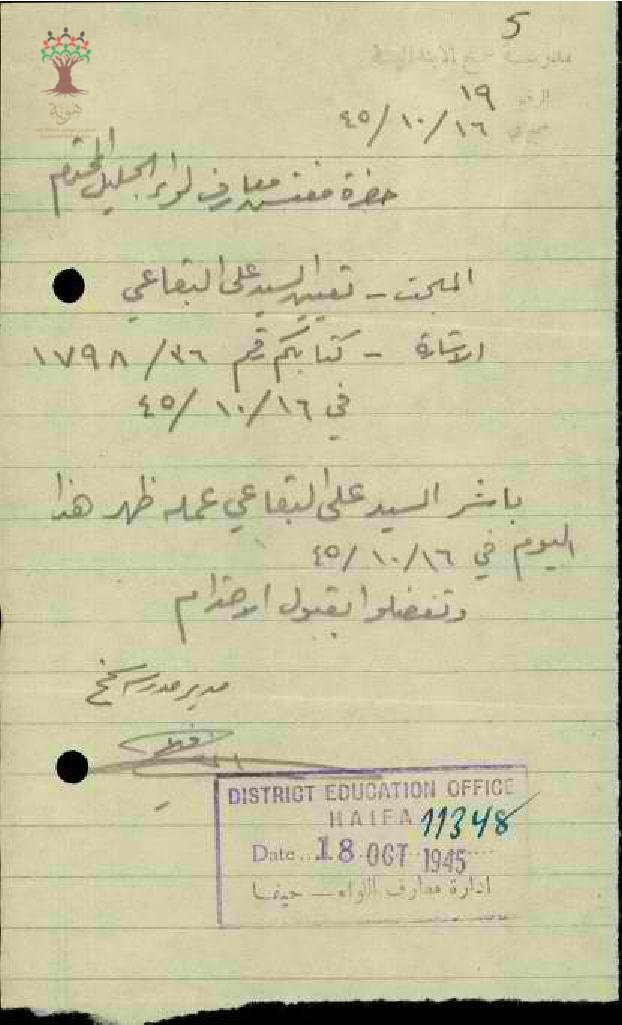 5
مدرسة سمخ الابتدائية
الرقم ١٩
سمخ في ١٦/١٠/٤٥
هوية
حضرة مفتش معارف لواء الجليل المحترم
المبحث - تعيين السيد علي البقاعي
الاشارة - كتابكم رقم ٣٦/ ١٧٩٨
في ١٦/١٠/٤٥
باشر السيد علي البقاعي عمله ظهر هذا
اليوم في ١٦/١٠/٤٥
وتفضلوا بقبول الاحترام
مدير مدرسة سمخ
DISTRICT EDUCATION OFFICE
HAIFA 11348
Date 18 OCT 1945
ادارة معارف اللواء - حيفا